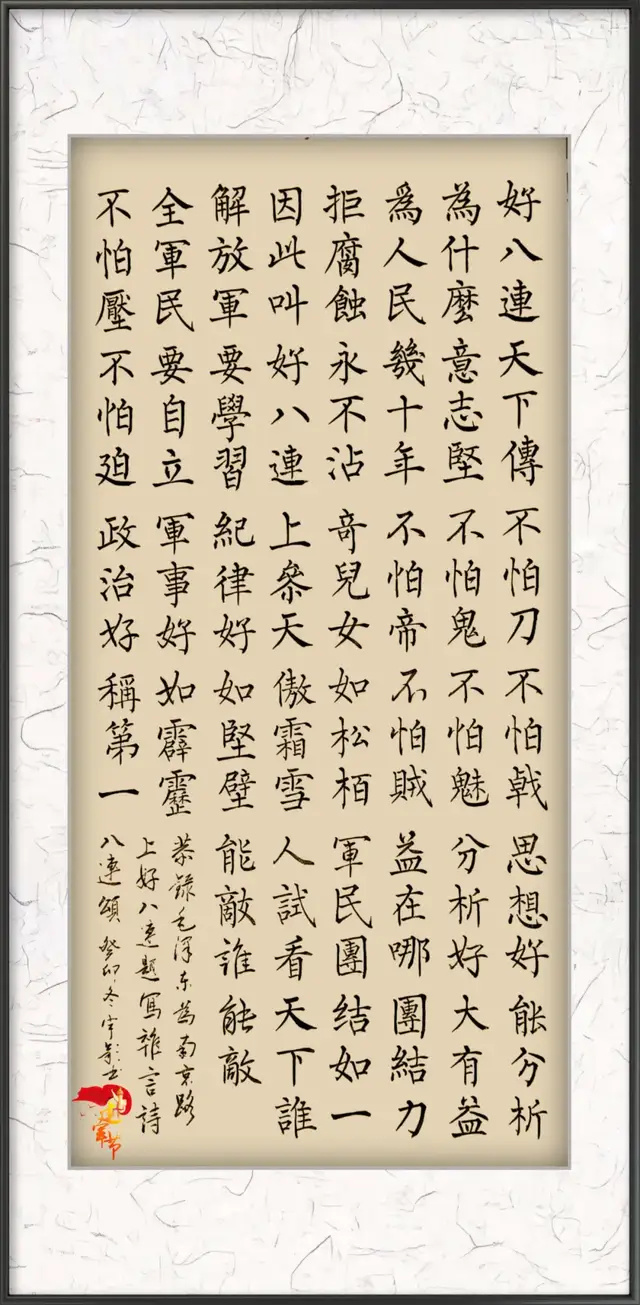 好八連天下傳
為什麼意志堅
爲人民幾十年
拒腐蝕永不沾
因此叫好八連
解放軍要學習
全軍民要自立
不怕壓不怕迫
不怕刀不怕戟
不怕鬼不怕魅
不怕帝不怕賊
奇兒女如松栢
上參天傲霜雪
紀律好如堅壁
軍事好如霹靂
政治好稱第一
思想好能分析
分析好大有益
益在哪團結力
軍民團结如一
人試看天下誰
能敵誰能敵
恭錄毛澤東為南京路
上好八連題寫雜言詩
八連頌癸卯冬宇
军节